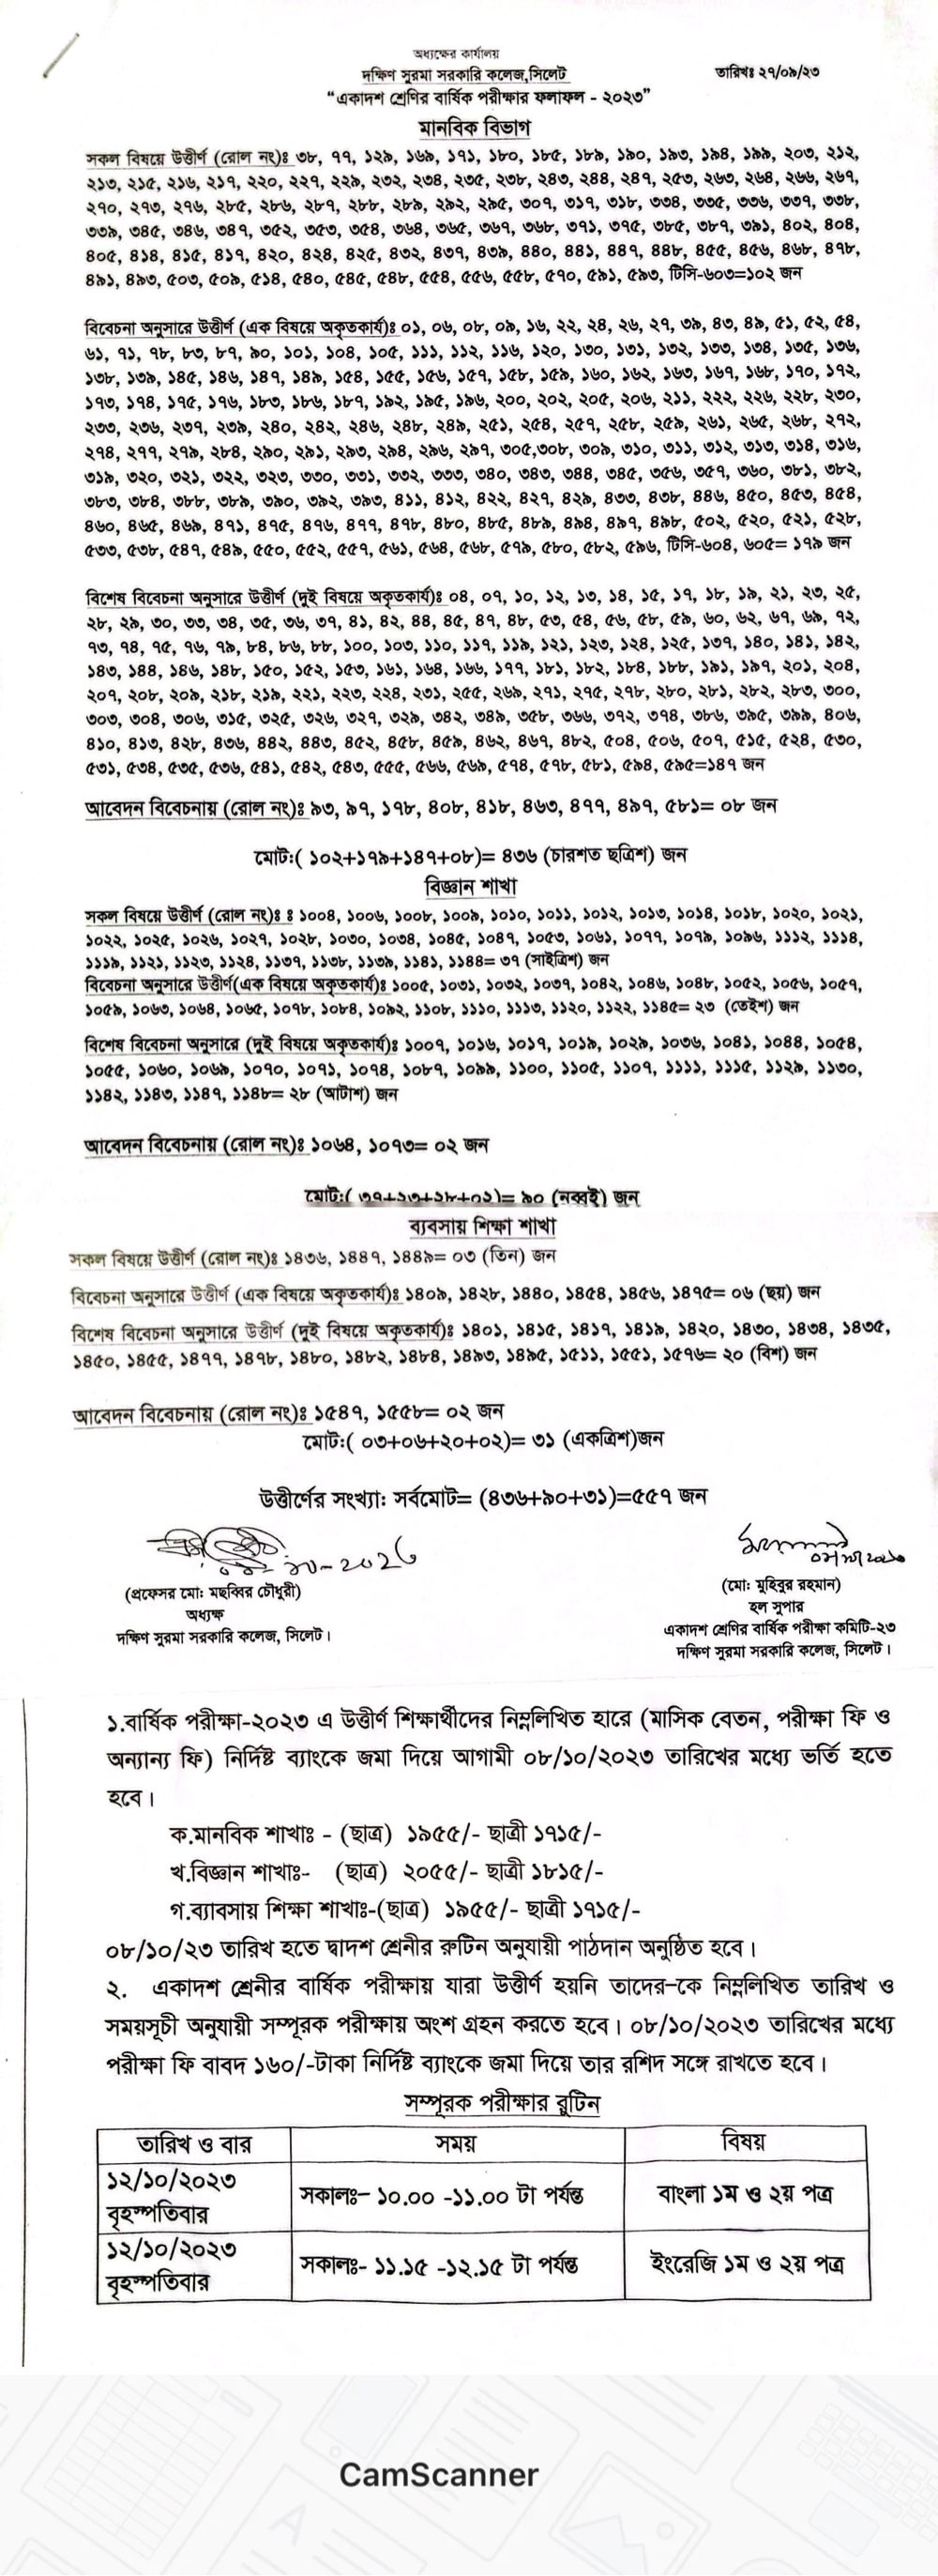 অধ্যক্ষের কার্যালয়
দক্ষিণ সুরমা সরকারি কলেজ,সিলেট
তারিখঃ ২৭/০৯/২৩
“একাদশ শ্রেণির বার্ষিক পরীক্ষার ফলাফল - ২০২৩”
মানবিক বিভাগ
সকল বিষয়ে উত্তীর্ণ (রোল নং)ঃ ৩৮, ৭৭, ১২৯, ১৬৯, ১৭১, ১৮০, ১৮৫, ১৮৯, ১৯০, ১৯৩, ১৯৪, ১৯৯, ২০৩, ২১২,
২১৩, ২১৫, ২১৬, ২১৭, ২২০, ২২৭, ২২৯, ২৩২, ২৩৪, ২৩৫, ২৩৮, ২৪৩, ২৪৪, ২৪৭, ২৫৩, ২৬৩, ২৬৪, ২৬৬, ২৬৭,
২৭০, ২৭৩, ২৭৬, ২৮৫, ২৮৬, ২৮৭, ২৮৮, ২৮৯, ২৯২, ২৯৫, ৩০৭, ৩১৭, ৩১৮, ৩৩৪, ৩৩৫, ৩৩৬, ৩৩৭, ৩৩৮,
৩৩৯, ৩৪৫, ৩৪৬, ৩৪৭, ৩৫২, ৩৫৩, ৩৫৪, ৩৬৪, ৩৬৫, ৩৬৭, ৩৬৮, ৩৭১, ৩৭৫, ৩৮৫, ৩৮৭, ৩৯১, ৪০২, ৪০৪,
৪০৫, ৪১৪, ৪১৫, ৪১৭, ৪২০, ৪২৪, ৪২৫, ৪৩২, ৪৩৭, ৪৩৯, ৪৪০, ৪৪১, ৪৪৭, ৪৪৮, ৪৫৫, ৪৫৬, ৪৬৮, ৪৭৮,
৪৯১, ৪৯৩, ৫০৩, ৫০৯, ৫১৪, ৫৪০, ৫৪৫, ৫৪৮, ৫৫৪, ৫৫৬, ৫৫৮, ৫৭০, ৫৯১, ৫৯৩, টিসি-৬০৩=১০২ জন
বিবেচনা অনুসারে উত্তীর্ণ (এক বিষয়ে অকৃতকার্য)ঃ ০১, ০৬, ০৮, ০৯, ১৬, ২২, ২৪, ২৬, ২৭, ৩৯, ৪৩, ৪৯, ৫১, ৫২, ৫৪,
৬১, ৭১, ৭৮, ৮৩, ৮৭, ৯০, ১০১, ১০৪, ১০৫, ১১১, ১১২, ১১৬, ১২০, ১৩০, ১৩১, ১৩২, ১৩৩, ১৩৪, ১৩৫, ১৩৬,
১৩৮, ১৩৯, ১৪৫, ১৪৬, ১৪৭, ১৪৯, ১৫৪, ১৫৫, ১৫৬, ১৫৭, ১৫৮, ১৫৯, ১৬০, ১৬২, ১৬৩, ১৬৭, ১৬৮, ১৭০, ১৭২,
১৭৩, ১৭৪, ১৭৫, ১৭৬, ১৮৩, ১৮৬, ১৮৭, ১৯২, ১৯৫, ১৯৬, ২০০, ২০২, ২০৫, ২০৬, ২১১, ২২২, ২২৬, ২২৮, ২৩০,
২৩৩, ২৩৬, ২৩৭, ২৩৯, ২৪০, ২৪২, ২৪৬, ২৪৮, ২৪৯, ২৫১, ২৫৪, ২৫৭, ২৫৮, ২৫৯, ২৬১, ২৬৫, ২৬৮, ২৭২,
২৭৪, ২৭৭, ২৭৯, ২৮৪, ২৯০, ২৯১, ২৯৩, ২৯৪, ২৯৬, ২৯৭, ৩০৫,৩০৮, ৩০৯, ৩১০, ৩১১, ৩১২, ৩১৩, ৩১৪, ৩১৬,
৩১৯, ৩২০, ৩২১, ৩২২, ৩২৩, ৩৩০, ৩৩১, ৩৩২, ৩৩৩, ৩৪০, ৩৪৩, ৩৪৪, ৩৪৫, ৩৫৬, ৩৫৭, ৩৬০, ৩৮১, ৩৮২,
৩৮৩, ৩৮৪, ৩৮৮, ৩৮৯, ৩৯০, ৩৯২, ৩৯৩, ৪১১, ৪১২, ৪২২, ৪২৭, ৪২৯, ৪৩৩, ৪৩৮, ৪৪৬, ৪৫০, ৪৫৩, ৪৫৪,
৪৬০, ৪৬৫, ৪৬৯, ৪৭১, ৪৭৫, ৪৭৬, ৪৭৭, ৪৭৮, ৪৮০, ৪৮৫, ৪৮৯, ৪৯৪, ৪৯৭, ৪৯৮, ৫০২, ৫২০, ৫২১, ৫২৮,
৫৩৩, ৫৩৮, ৫৪৭, ৫৪৯, ৫৫০, ৫৫২, ৫৫৭, ৫৬১, ৫৬৪, ৫৬৮, ৫৭৯, ৫৮০, ৫৮২, ৫৯৬, টিসি-৬০৪, ৬০৫= ১৭৯ জন
বিশেষ বিবেচনা অনুসারে উত্তীর্ণ (দুই বিষয়ে অকৃতকার্য)ঃ ০৪, ০৭, ১০, ১২, ১৩, ১৪, ১৫, ১৭, ১৮, ১৯, ২১, ২৩, ২৫,
২৮, ২৯, ৩০, ৩৩, ৩৪, ৩৫, ৩৬, ৩৭, ৪১, ৪২, ৪৪, ৪৫, ৪৭, ৪৮, ৫৩, ৫৪, ৫৬, ৫৮, ৫৯, ৬০, ৬২, ৬৭, ৬৯, ৭২,
৭৩, ৭৪, ৭৫, ৭৬, ৭৯, ৮৪, ৮৬, ৮৮, ১০০, ১০৩, ১১০, ১১৭, ১১৯, ১২১, ১২৩, ১২৪, ১২৫, ১৩৭, ১৪০, ১৪১, ১৪২,
১৪৩, ১৪৪, ১৪৬, ১৪৮, ১৫০, ১৫২, ১৫৩, ১৬১, ১৬৪, ১৬৬, ১৭৭, ১৮১, ১৮২, ১৮৪, ১৮৮, ১৯১, ১৯৭, ২০১, ২০৪,
২০৭, ২০৮, ২০৯, ২১৮, ২১৯, ২২১, ২২৩, ২২৪, ২৩১, ২৫৫, ২৬৯, ২৭১, ২৭৫, ২৭৮, ২৮০, ২৮১, ২৮২, ২৮৩, ৩০০,
৩০৩, ৩০৪, ৩০৬, ৩১৫, ৩২৫, ৩২৬, ৩২৭, ৩২৯, ৩৪২, ৩৪৯, ৩৫৮, ৩৬৬, ৩৭২, ৩৭৪, ৩৮৬, ৩৯৫, ৩৯৯, ৪০৬,
৪১০, ৪১৩, ৪২৮, ৪৩৬, ৪৪২, ৪৪৩, ৪৫২, ৪৫৮, ৪৫৯, ৪৬২, ৪৬৭, ৪৮২, ৫০৪, ৫০৬, ৫০৭, ৫১৫, ৫২৪, ৫৩০,
৫৩১, ৫৩৪, ৫৩৫, ৫৩৬, ৫৪১, ৫৪২, ৫৪৩, ৫৫৫, ৫৬৬, ৫৬৯, ৫৭৪, ৫৭৮, ৫৮১, ৫৯৪, ৫৯৫=১৪৭ জন
আবেদন বিবেচনায় (রোল নং)ঃ ৯৩, ৯৭, ১৭৮, ৪০৮, ৪১৮, ৪৬৩, ৪৭৭, ৪৯৭, ৫৮১= ০৮ জন
মোট:( ১০২+১৭৯+১৪৭+০৮)= ৪৩৬ (চারশত ছত্রিশ) জন
বিজ্ঞান শাখা
সকল বিষয়ে উত্তীর্ণ (রোল নং)ঃ ঃ ১০০৪, ১০০৬, ১০০৮, ১০০৯, ১০১০, ১০১১, ১০১২, ১০১৩, ১০১৪, ১০১৮, ১০২০, ১০২১,
১০২২, ১০২৫, ১০২৬, ১০২৭, ১০২৮, ১০৩০, ১০৩৪, ১০৪৫, ১০৪৭, ১০৫৩, ১০৬১, ১০৭৭, ১০৭৯, ১০৯৬, ১১১২, ১১১৪,
১১১৯, ১১২১, ১১২৩, ১১২৪, ১১৩৭, ১১৩৮, ১১৩৯, ১১৪১, ১১৪৪= ৩৭ (সাইত্রিশ) জন
বিবেচনা অনুসারে উত্তীর্ণ(এক বিষয়ে অকৃতকার্য)ঃ ১০০৫, ১০৩১, ১০৩২, ১০৩৭, ১০৪২, ১০৪৬, ১০৪৮, ১০৫২, ১০৫৬, ১০৫৭,
১০৫৯, ১০৬৩, ১০৬৪, ১০৬৫, ১০৭৮, ১০৮৪, ১০৯২, ১১০৮, ১১১০, ১১১৩, ১১২০, ১১২২, ১১৪৫= ২৩ (তেইশ) জন
বিশেষ বিবেচনা অনুসারে (দুই বিষয়ে অকৃতকার্য)ঃ ১০০৭, ১০১৬, ১০১৭, ১০১৯, ১০২৯, ১০৩৬, ১০৪১, ১০৪৪, ১০৫৪,
১০৫৫, ১০৬০, ১০৬৯, ১০৭০, ১০৭১, ১০৭৪, ১০৮৭, ১০৯৯, ১১০০, ১১০৫, ১১০৭, ১১১১, ১১১৫, ১১২৯, ১১৩০,
১১৪২, ১১৪৩, ১১৪৭, ১১৪৮= ২৮ (আটাশ) জন
আবেদন বিবেচনায় (রোল নং)ঃ ১০৬৪, ১০৭৩= ০২ জন
মোট:( ৩৭+২৩+২৮+০২)= ৯০ (নব্বই) জন
ব্যবসায় শিক্ষা শাখা
সকল বিষয়ে উত্তীর্ণ (রোল নং)ঃ ১৪৩৬, ১৪৪৭, ১৪৪৯= ০৩ (তিন) জন
বিবেচনা অনুসারে উত্তীর্ণ (এক বিষয়ে অকৃতকার্য)ঃ ১৪০৯, ১৪২৮, ১৪৪০, ১৪৫৪, ১৪৫৬, ১৪৭৫= ০৬ (ছয়) জন
বিশেষ বিবেচনা অনুসারে উত্তীর্ণ (দুই বিষয়ে অকৃতকার্য)ঃ ১৪০১, ১৪১৫, ১৪১৭, ১৪১৯, ১৪২০, ১৪৩০, ১৪৩৪, ১৪৩৫,
১৪৫০, ১৪৫৫, ১৪৭৭, ১৪৭৮, ১৪৮০, ১৪৮২, ১৪৮৪, ১৪৯৩, ১৪৯৫, ১৫১১, ১৫৫১, ১৫৭৬= ২০ (বিশ) জন
আবেদন বিবেচনায় (রোল নং)ঃ ১৫৪৭, ১৫৫৮= ০২ জন
মোট:( ০৩+০৬+২০+০২)= ৩১ (একত্রিশ)জন
উত্তীর্ণের সংখ্যা: সর্বমোট= (৪৩৬+৯০+৩১)=৫৫৭ জন
(প্রফেসর মো: মছব্বির চৌধুরী)
অধ্যক্ষ
দক্ষিণ সুরমা সরকারি কলেজ, সিলেট।
(মো: মুহিবুর রহমান)
হল সুপার
একাদশ শ্রেণির বার্ষিক পরীক্ষা কমিটি-২৩
দক্ষিণ সুরমা সরকারি কলেজ, সিলেট।
১.বার্ষিক পরীক্ষা-২০২৩ এ উত্তীর্ণ শিক্ষার্থীদের নিম্নলিখিত হারে (মাসিক বেতন, পরীক্ষা ফি ও
অন্যান্য ফি) নির্দিষ্ট ব্যাংকে জমা দিয়ে আগামী ০৮/১০/২০২৩ তারিখের মধ্যে ভর্তি হতে
হবে।
ক.মানবিক শাখাঃ - (ছাত্র) ১৯৫৫/- ছাত্রী ১৭১৫/-
খ.বিজ্ঞান শাখাঃ- (ছাত্র) ২০৫৫/- ছাত্রী ১৮১৫/-
গ.ব্যাবসায় শিক্ষা শাখাঃ-(ছাত্র) ১৯৫৫/- ছাত্রী ১৭১৫/-
০৮/১০/২৩ তারিখ হতে দ্বাদশ শ্রেনীর রুটিন অনুযায়ী পাঠদান অনুষ্ঠিত হবে।
২. একাদশ শ্রেনীর বার্ষিক পরীক্ষায় যারা উত্তীর্ণ হয়নি তাদের-কে নিম্নলিখিত তারিখ ও
সময়সূচী অনুযায়ী সম্পূরক পরীক্ষায় অংশ গ্রহন করতে হবে। ০৮/১০/২০২৩ তারিখের মধ্যে
পরীক্ষা ফি বাবদ ১৬০/-টাকা নির্দিষ্ট ব্যাংকে জমা দিয়ে তার রশিদ সঙ্গে রাখতে হবে।
সম্পূরক পরীক্ষার রুটিন
তারিখ ও বার সময় বিষয়
১২/১০/২০২৩
বৃহস্পতিবার সকালঃ- ১০.০০ -১১.০০ টা পর্যন্ত বাংলা ১ম ও ২য় পত্র
১২/১০/২০২৩
বৃহস্পতিবার সকালঃ- ১১.১৫ -১২.১৫ টা পর্যন্ত ইংরেজি ১ম ও ২য় পত্র
CamScanner